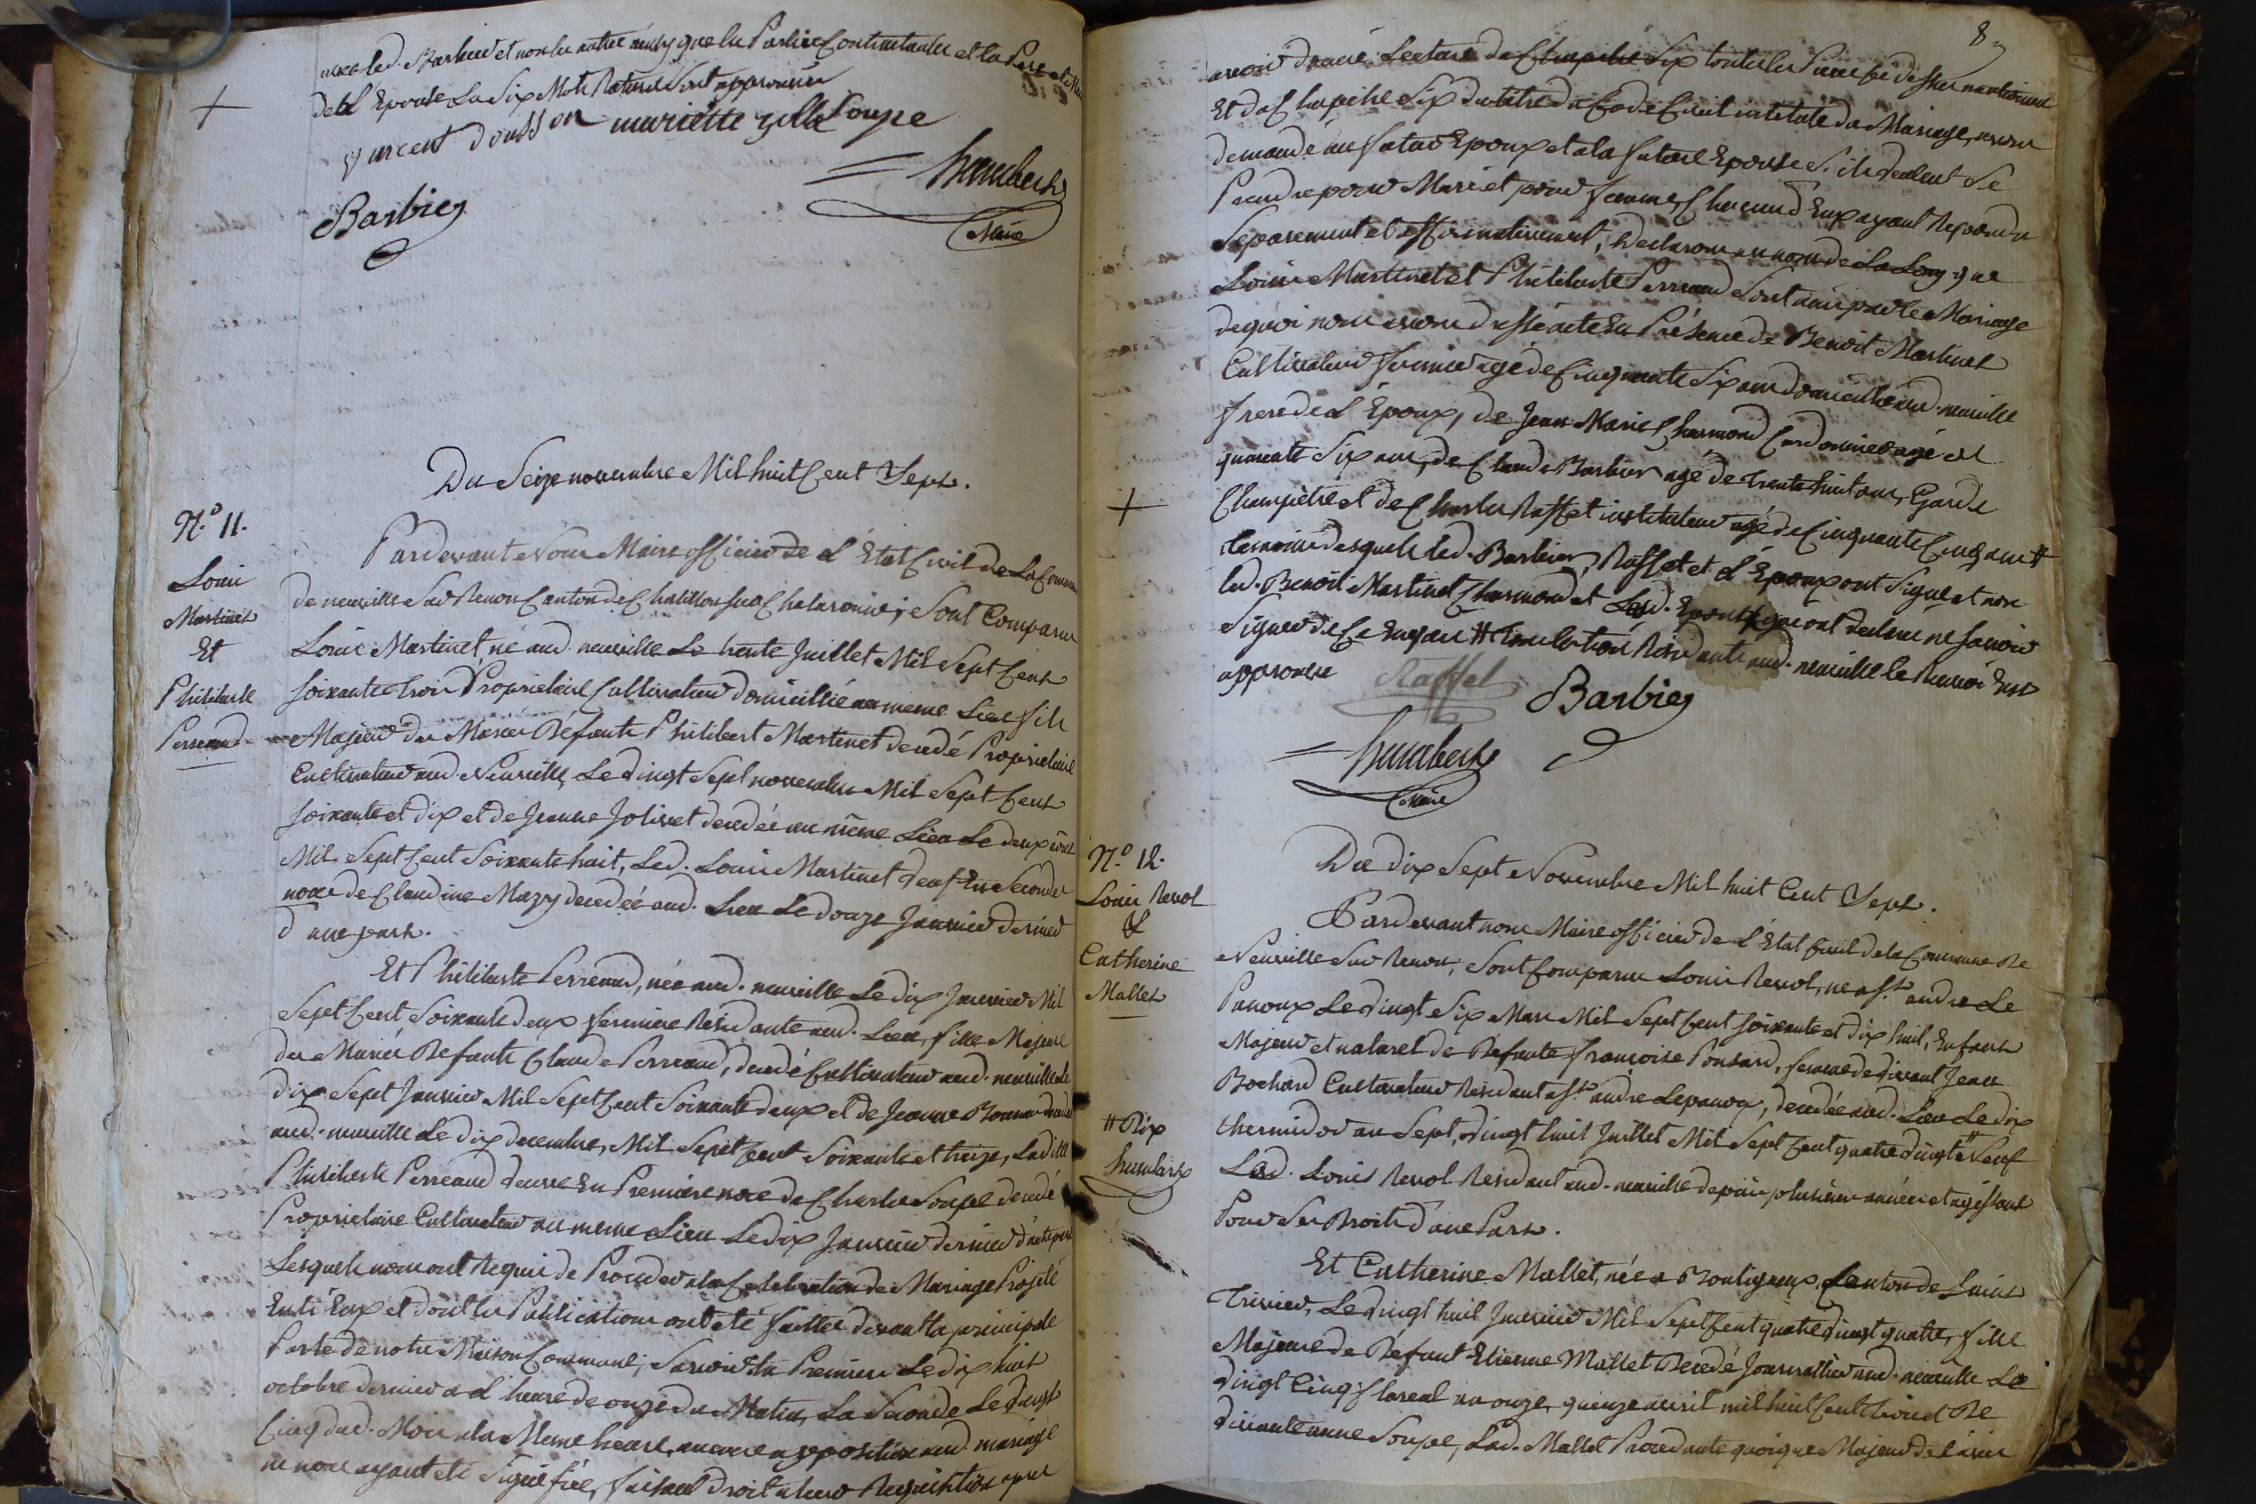 avec led. Barbier et non les autres témoins que les Parties Contractantes et les Pere et Mere
de lad. Epouse Les Six Mots Raturés Sont approuvés
vincent dousson mariette zélle Soupe
Barbier
humbert
Maire
Du Seize novembre Mil huit Cent Sept.
N.º 11.
Louis
Martinet
Et
Philiberte
Perreaud
Pardevant Nous Maire officier de L'Etat Civil de La Commune
de neuville Sur Renon Canton de Chatillon sur Chalaronne; Sont Comparus
Louis Martinet né aud. neuville Le trente Juillet Mil Sept Cent
soixante trois Proprietaire Cultivateur domicillié au meme Lieu fils
Majeur des Mariés Défunts Philibert Martinet décédé Proprietaire
Cultivateur aud. Neuville, Le vingt Sept novembre Mil Sept Cent
soixante et dix et de Jeanne Jolivet décédée au même Lieu Le deux
Mil Sept Cent Soixante huit, Led. Louis Martinet veuf En Secondes
noces de Claudine Mazuy décédée aud. Lieu Le douze Janvier dernier
d'une part.
Et Philiberte Perreaud, née aud. neuville Le dix Janvier Mil
Sept Cent Soixante deux fermière Résidante aud. Lieu, fille Majeure
des Mariés Defunts Claude Perreaud, décédé Cultivateur aud. neuville Le
dix Sept Janvier Mil Sept Cent Soixante deux et de Jeanne décédée
aud. neuville Le dix decembre, Mil Sept Cent Soixante et treize, Ladite
Philiberte Perreaud veuve En Premiere noce de Charles Soupe décédé
Proprietaire Cultivateur au meme Lieu Le dix Janvier dernier d'autre part
Lesquels nous ont Requis de Proceder a la Celebration du Mariage Projeté
Entr'Eux et dont les Publications ont été faittes devant la principale
Porte de notre Maison Commune; Savoir La Premiere Le dix huit
octobre dernier a L'heure de onze du Matin, La Seconde Le vingt
Cinq dud. Mois a la Meme heure, aucune opposition aud. mariage
ne nous ayant été Signifiée, faisant droit a leur Requisition apres
8
avoir donné Lecture de Chapitre Six toutes les Pieces ci dessus mentionnées
Et du Chapitre Six du titre du Code Civil intitulé du Mariage, avons
demandé au futur Epoux et a la future Epouse S'ils veulent Se
Prendre pour Mari et pour femme Chacun d'Eux ayant Repondu
Séparement et affirmativement, Declarons au nom de La Loy que
Louis Martinet et Philiberte Perreaud Sont unis par le Mariage
de quoi nous avons dressé acte En Présence de Benoit Martinet
Cultivateur fermier agé de Cinquante Six ans domicillié aud. neuville
frere de L'Epoux, de Jean Marie Charmond Cordonnier agé de
quarante Six ans, de Claude Barbier agé de trente huit ans, Garde
Champêtre et de Charles Raffet instituteur agé de Cinquante Cinq ans #
temoins desquels led. Barbier, Raffet et L'Epoux ont Signé et non
led. Benoit Martinet Charmond et Lad. Epouse qui ont declaré ne Savoir
Signer de Ce Enquis # tous Résidants aud. neuville le Renvoi Est
approuvé
Raffet
Barbier
humbert
Maire
N.º 12.
Louis Revol
&
Catherine
Mallet
Du dix Sept Novembre Mil huit Cent Sept.
Pardevant nous Maire officier de L'Etat Civil de la Commune De
Neuville Sur Renon, Sont Comparus Louis Revol, né a S.t andré Le
Panoux Le vingt Six Mars Mil Sept Cent Soixante et dix huit, Enfant
Majeur et naturel de Defunte francoise Ponsard, femme de vivant Jean
Bochard Cultivateur Résidant a S.t andré Lepanoux, décédée aud. Lieu Le dix
thermidor an Sept, vingt huit Juillet Mil Sept Cent quatre vingt # Neuf
Led. Louis Revol Résidant aud. neuville depuis plusieurs années et agissant
Pour Ses Droits d'une Part.
# Dix
humbert
Et Catherine Mallet, née a Bouligneux, Canton de Saint
Trivier, Le vingt huit Janvier Mil Sept Cent quatre vingt quatre, fille
Majeure de Défunt Etienne Mallet Decédé Journallier aud. neuville Le
vingt Cinq floreal an onze, quinze avril mil huit Cent trois et De
vivante anne Soupe, Lad. Mallet Procedante quoique Majeure de L'avis